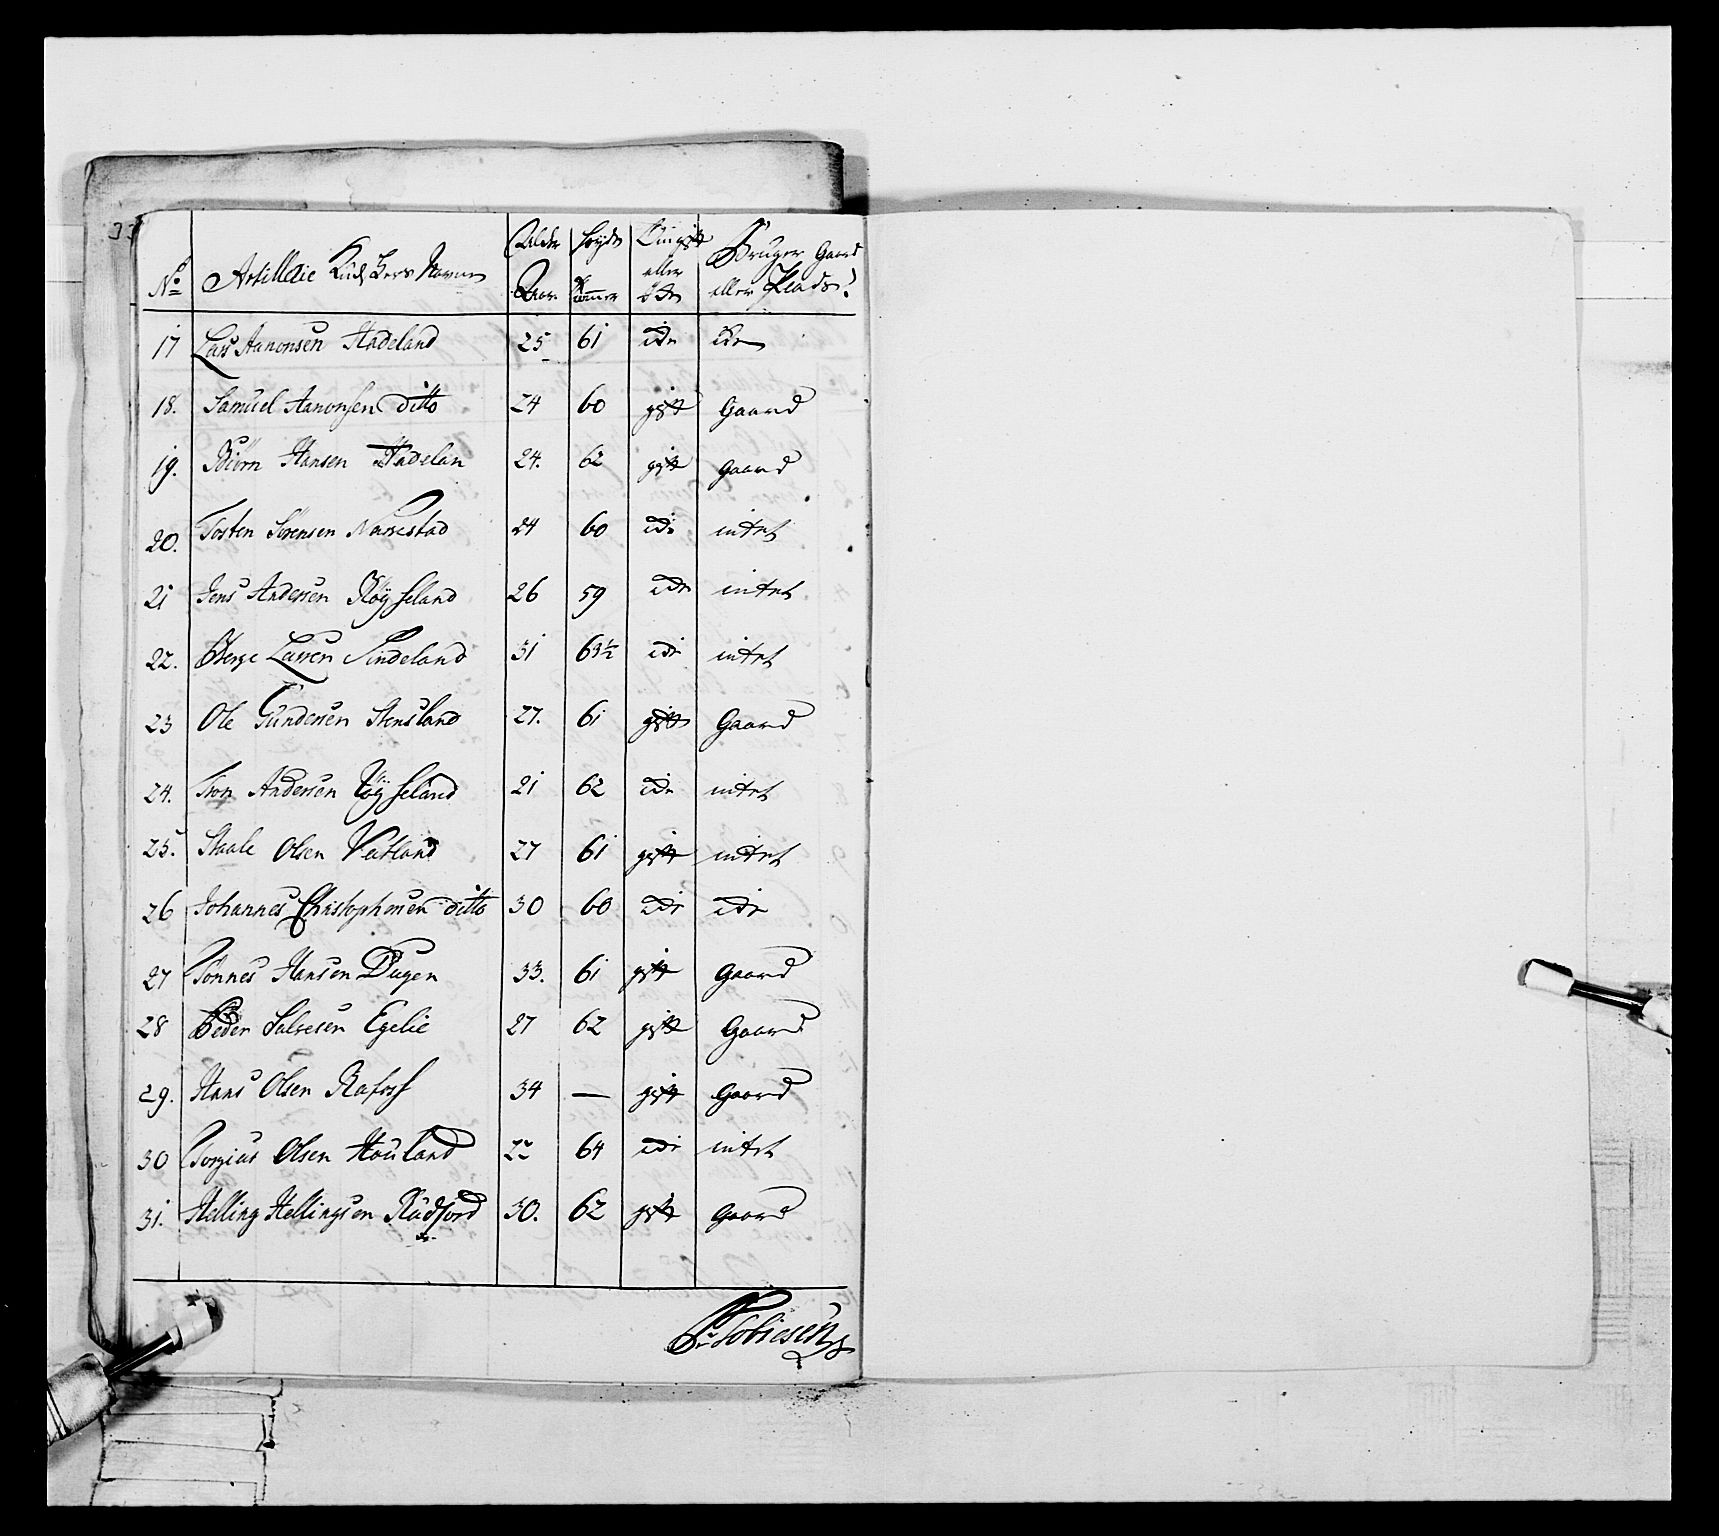 No Artillerie Kudskers Navne Alder Aar Høyde Tommer Om gift eller ei Bruger Gaard eller Plads?
17 Lars Aanonsen Hadeland 25 61 ei
18. Samuel Aanonsen ditto 24 60 gift Gaard
19. Biörn Hansen Hadelan 24. 62 gift Gaard
20. Tosten Sörensen Narrestad 24 60 intet
21 Jens Andersen Röysseland 26 59 intet
22. Berge Larsen Sindeland 31 63½ intet
23 Ole Gundersen Stensland 27. 61 gift Gaard
24. Tron Andersen Röysseland 21 62 intet
25. Staale Olsen Vatland 27 61 gift intet
26 Johannes Christophersen ditto 30 60
27 Tönnes Hansen Dugen 33. 61 gift Gaard
28 Peder Salvesen Egelie 27 62 gift Gaard
29. Hans Olsen Rafoss 34 — gift Gaard
30 Torgius Olsen Houland 22 64 intet
31. Helling Hellingsen Rudjord 30. 62 gift Gaard
Tobiesen